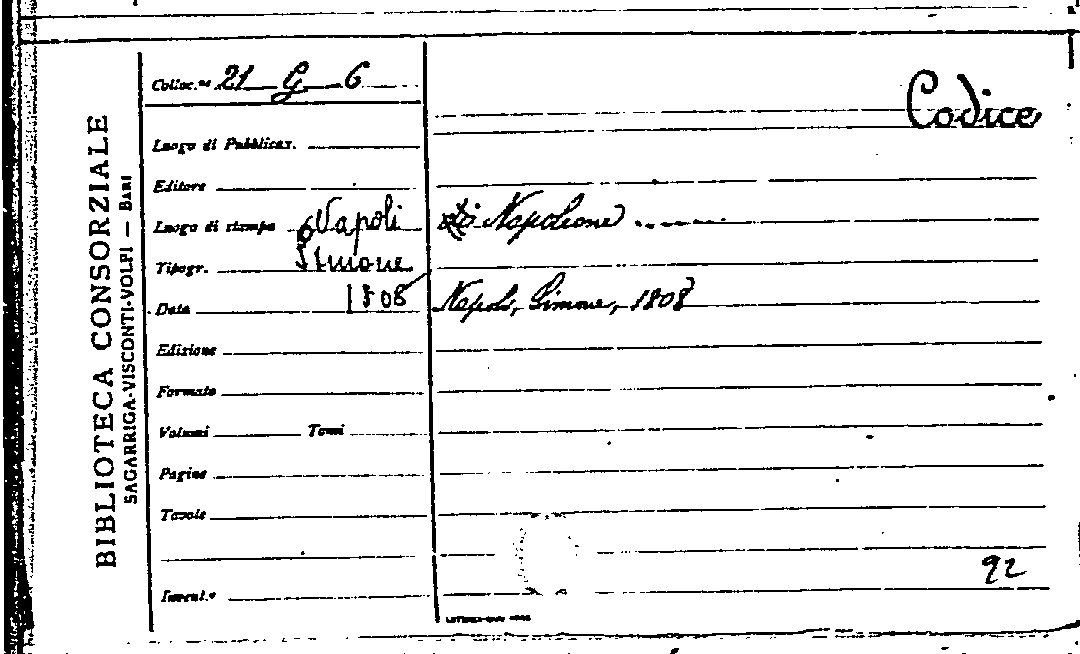 BIBLIOTECA CONSORZIALE
SAGARRIGA-VISCONTI-VOLPI — BARI
Colloc.ne 21 G 6
Luogo di Pubblicaz.
Editore
Luogo di stampa Napoli
Tipogr. Simone
Data 1808
Edizione
Formato
Volumi Tomi
Pagine
Tavole
Invent.º
Codice
di Napoleone
Napoli, Simone, 1808
92